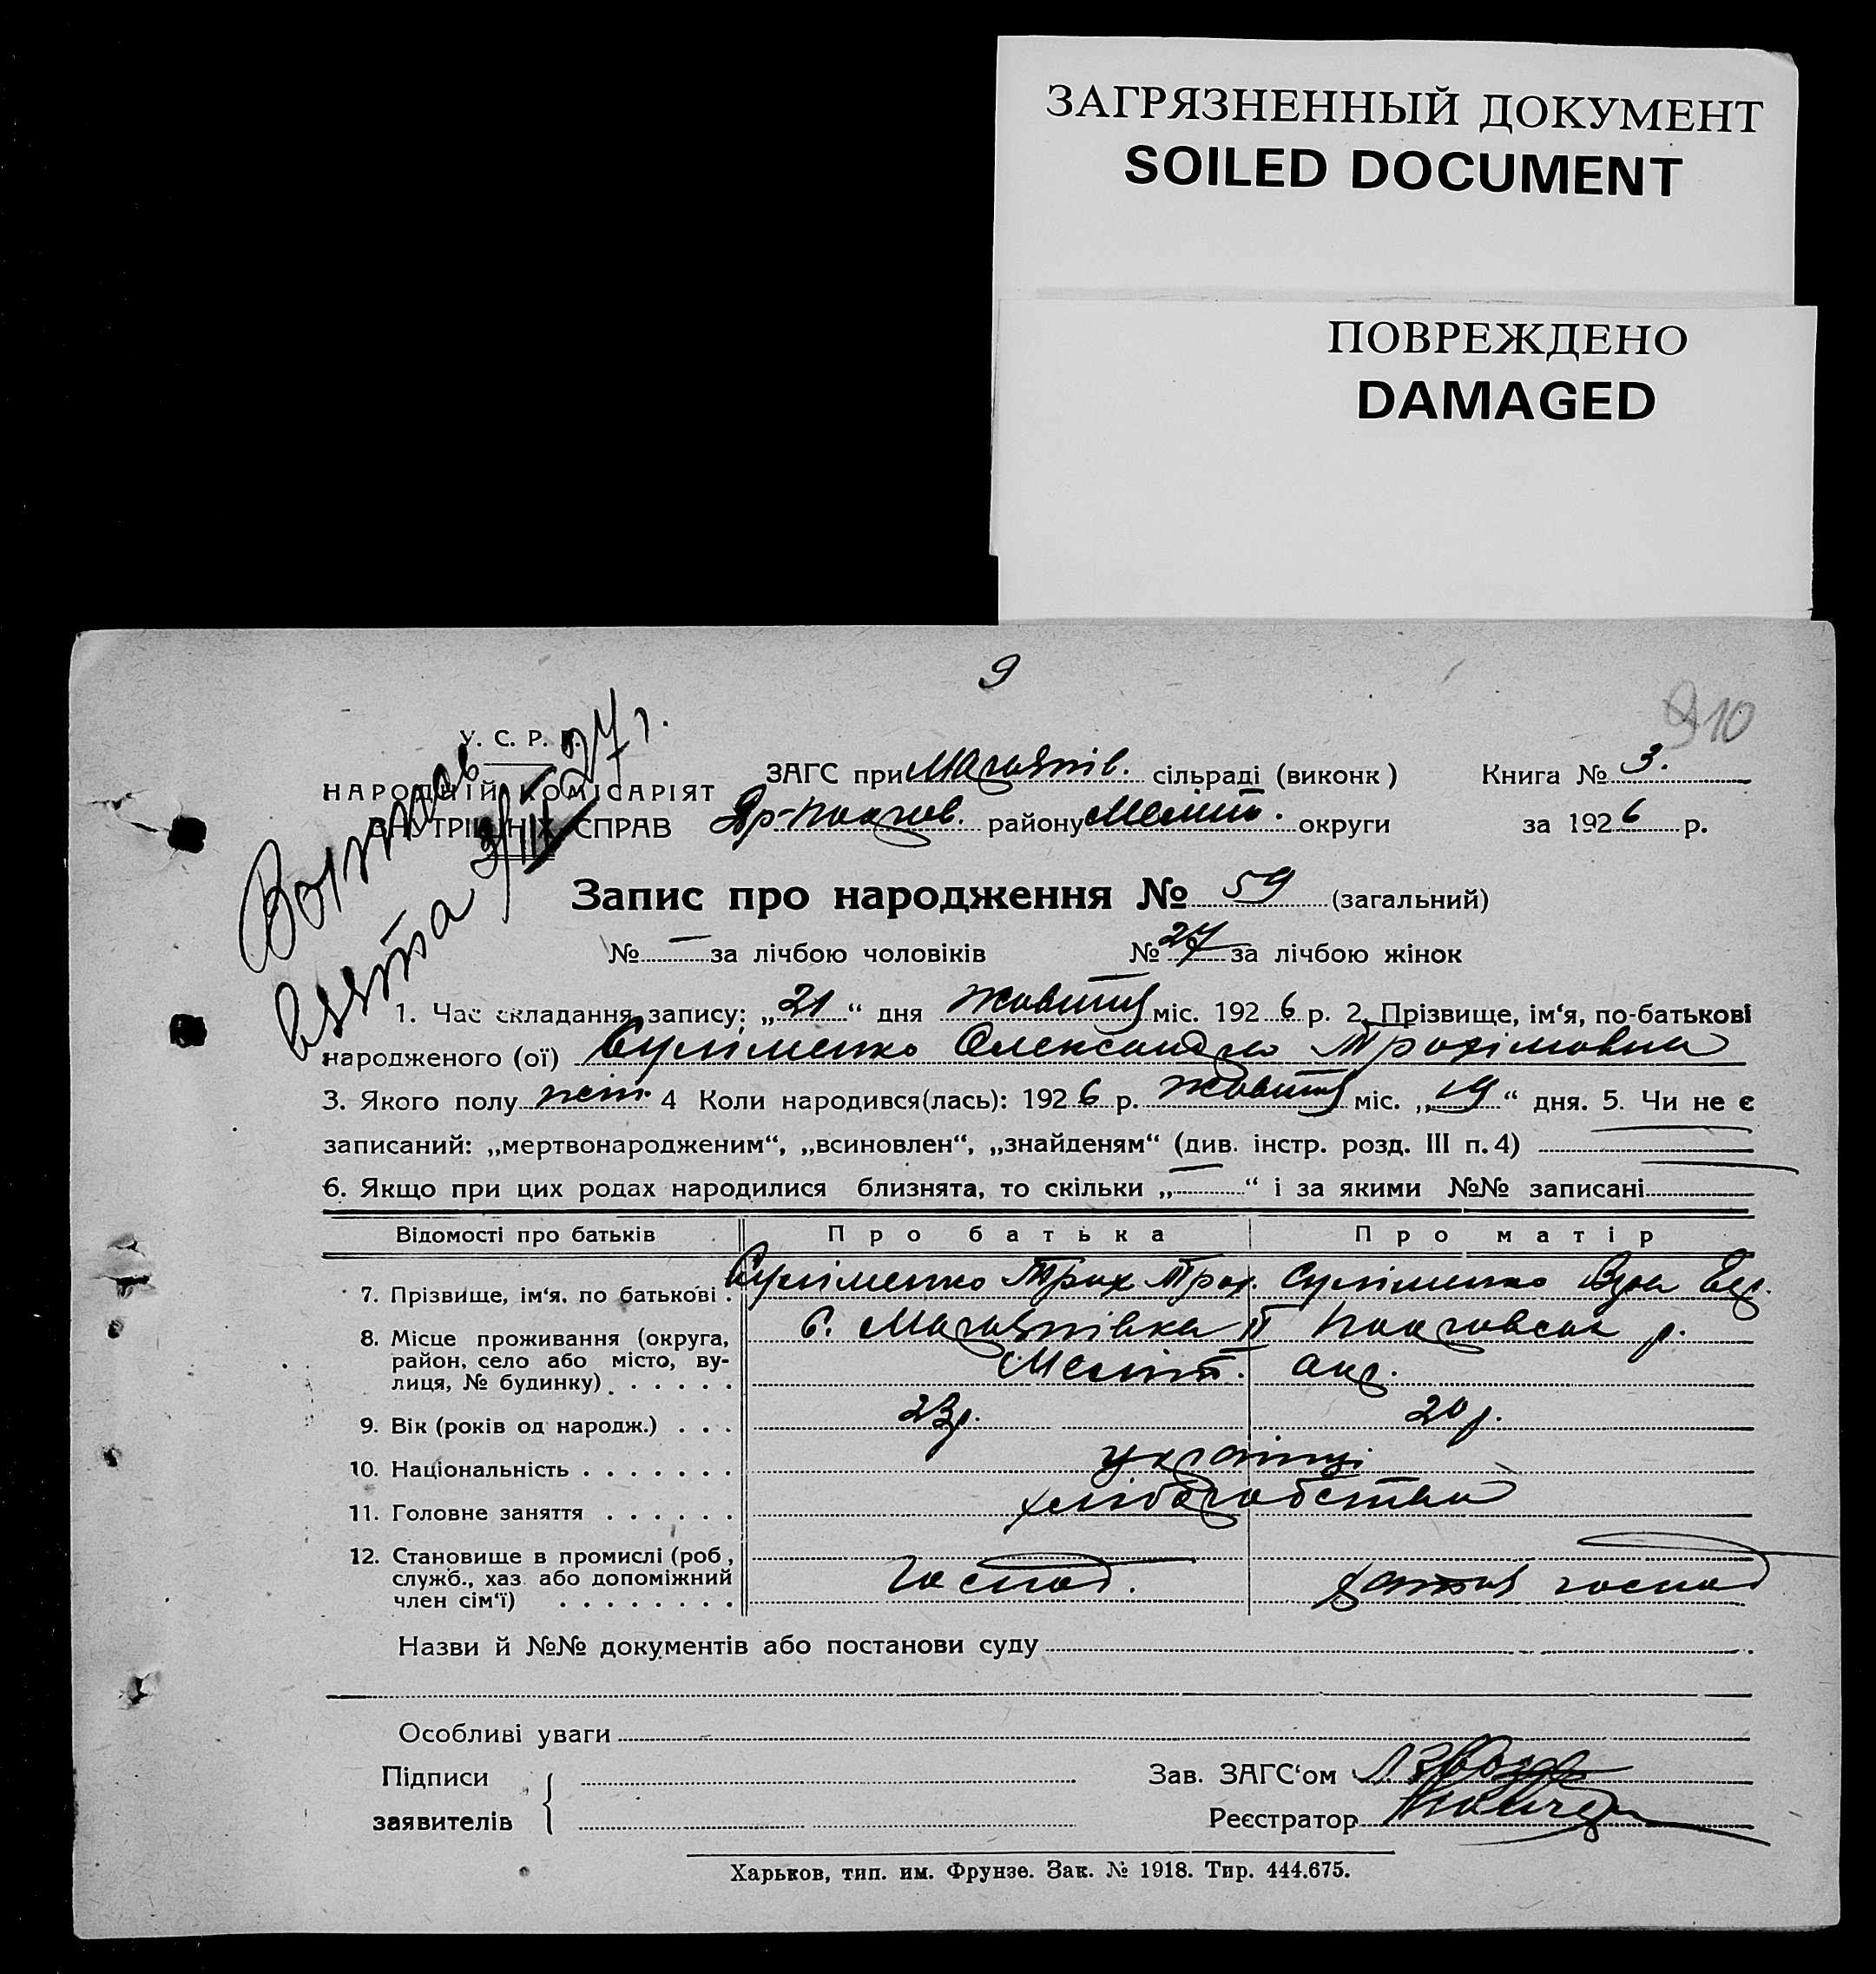 ЗАГРЯЗНЕННЫЙ ДОКУМЕНТ
SOILED DOCUMENT
ПОВРЕЖДЕНО
DAMAGED
9
910
27 г.
У. С. Р. Р.
НАРОДНІЙ КОМІСАРІЯТ
ВНУТРІШНІХ СПРАВ
ЗАГС при сільраді (виконк) Книга № 3.
району Меліт. округи за 1926 р.
Запис про народження № 59 (загальний)
№ — за лічбою чоловіків № 27 за лічбою жінок
1. Час складання запису: „21“ дня жовтня міс. 1926 р. 2. Прізвище, ім‘я, по-батькові
народженого (ої) Суліменко Олександра Трохімовна
3. Якого полу жін. 4 Коли народився(лась): 1926 р. жовтня міс. „19“ дня. 5. Чи не є
записаний: „мертвонародженим“, „всиновлен“, „знайденям“ (див. інстр. розд. III п. 4) —
6. Якщо при цих родах народилися близнята, то скільки „—“ і за якими №№ записані —
Відомості про батьків Про батька Про матір
7. Прізвище, ім‘я, по батькові . Суліменко Трох. Трох. Суліменко
8. Місце проживання (округа, район, село або місто, вулиця, № будинку) . . . . . с. II р.
Меліт. окр.
9. Вік (років од народж.) . . . 23 р. 20 р.
10. Національність . . . . . . . українці
11. Головне заняття . . . . . . хліборобство
12. Становище в промислі (роб., служб., хаз. або допоміжний член сім‘ї) . . . . . . . . господ. господ
Назви й №№ документів або постанови суду
Особливі уваги
Підписи Зав. ЗАГС‘ом
заявителів Реєстратор
Харьков, тип. им. Фрунзе. Зак. № 1918. Тир. 444.675.